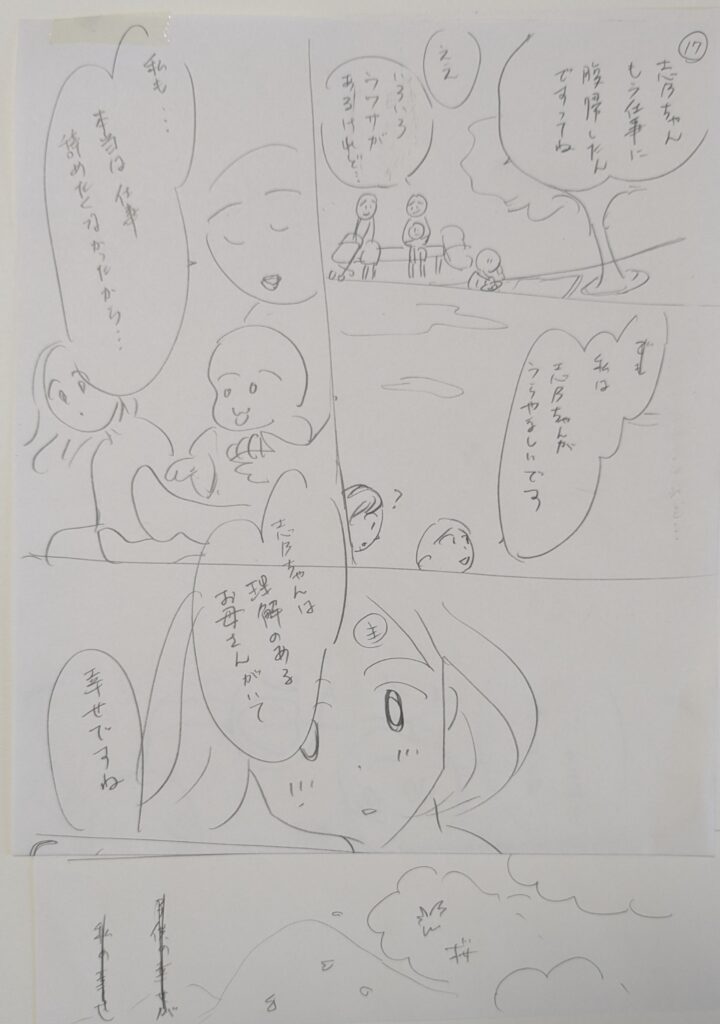 17
志乃ちゃん
もう仕事に
腹帰したん
ですってね
ええ
いろいろ
ウワサが
あるけれど…
私も…
本当は仕事
辞めたくなかったから…
でも
私は
志乃ちゃんが
うらやましいです
?
志乃ちゃんは
理解のある
お母さんがいて
主
幸せですね
桜
子供の幸せが
私の幸せ